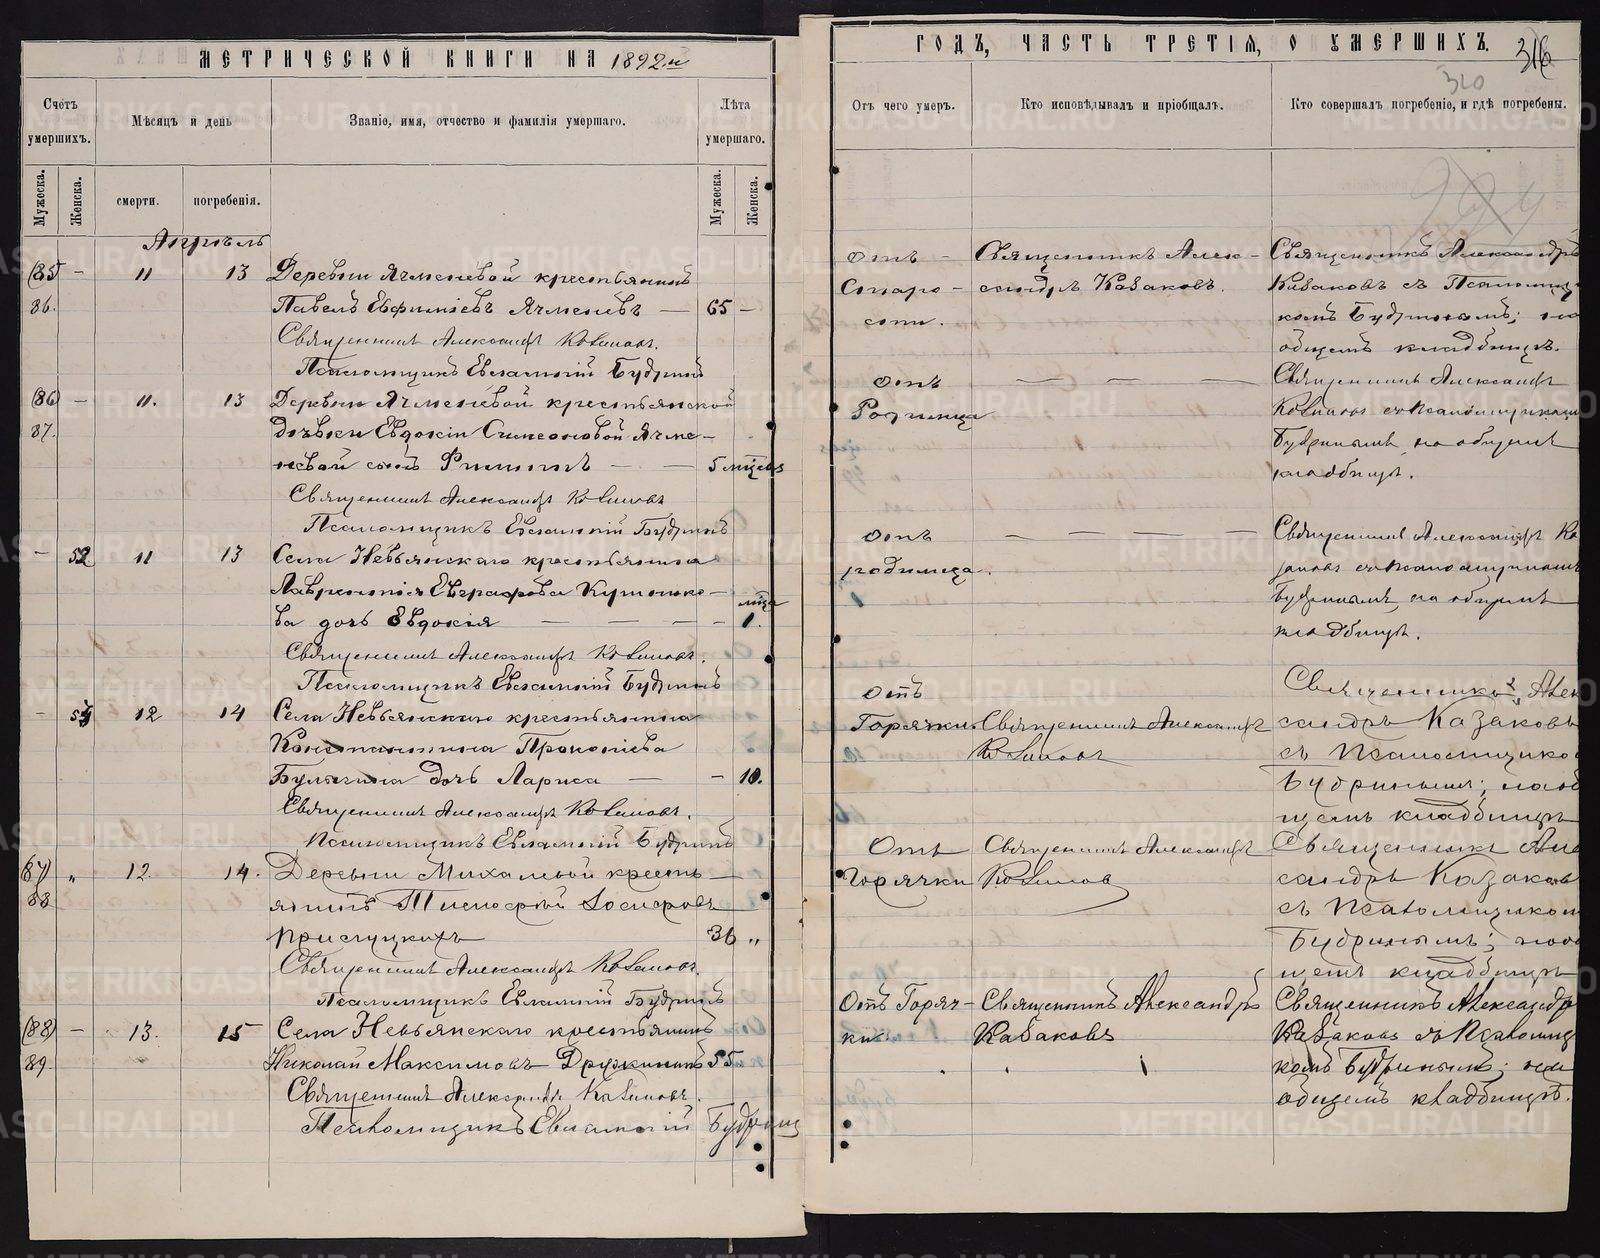 МЕТРИЧЕСКОЙ КНИГИ НА 1892 й
Счётъ умершихъ.
Мѣсяцъ и день
Званіе, имя, отчество и фамилія умершаго.
Лѣта умершаго.
Мужеска.
Женска.
смерти.
погребенія.
Мужеска.
Женска.
Апрѣль
(85) — 11 13 Деревни Ячменевой крестьянинъ
86. Павелъ Евфиміевъ Ячменевъ — 65 —
Священникъ Александръ Казаковъ.
Псаломщикъ Евлампій Будринъ
(86) — 11. 13 Деревни Ячменевой крестьянской
87. дочери Евдокіи Симеоновой Ячме-
невой сынъ Филиппъ — — 5 мѣсев
Священникъ Александръ Казаковъ
Псаломщикъ Евлампій Будринъ
— 52 11 13 Села Невьянскаго крестьянина
Лаврентія Евграфова
ва дочь Евдокія — — — — мѣся 1.
Священникъ Александръ Казаковъ.
Псаломщикъ Евлампій Будринъ
— 12 14 Села Невьянскаго крестьянина
Константина Прокопіева
дочь Лариса — — 10.
Священникъ Александръ Казаковъ.
Псаломщикъ Евлампій Будринъ
(87) „ 12. 14. Деревни Михалевой кресть-
88 янинъ Тимофей Іосифовъ
36 „
Священникъ Александръ Казаковъ.
Псаломщикъ Евлампій Будринъ
(88) — 13. 15 Села Невьянскаго крестьянинъ
89 Николай Максимовъ Дружининъ 55.
Священникъ Александръ Казаковъ.
Псаломщикъ Евлампій Будринъ
ГОДЪ, ЧАСТЬ ТРЕТІЯ, О УМЕРШИХЪ.
316
320
Отъ чего умеръ.
Кто исповѣдывалъ и пріобщалъ.
Кто совершалъ погребеніе, и гдѣ погребены.
отъ — Священникъ Алек- Священникъ Александръ
Старо- сандръ Казаковъ. Казаковъ съ Псаломщи
сти. комъ Будринымъ; на
общемъ кладбищѣ.
отъ — — — — Священникъ Александръ
Родимца Казаковъ съ Псаломщикомъ
Будринымъ, на общемъ
кладбищѣ.
отъ — — — — Священникъ Александръ Ка
родимца. заковъ съ Псаломщикомъ
Будринымъ, на общемъ
кладбищѣ.
отъ Священникъ Алек
Горячки Священникъ Александръ сандръ Казаковъ
Казаковъ съ Псаломщико
Будринымъ; на об
щемъ кладбищѣ
Отъ Священникъ Александръ Священникъ Але
Горячки Казаковъ сандръ Казаковъ
съ Псаломщиком
Будринымъ; на об
щемъ кладбищѣ
Отъ Горяч- Священникъ Александръ Священникъ Александр
ки. Казаковъ Казаковъ съ Псаломщи
комъ Будринымъ; на
общемъ кладбищѣ.
METRIKI.GASO-URAL.RU